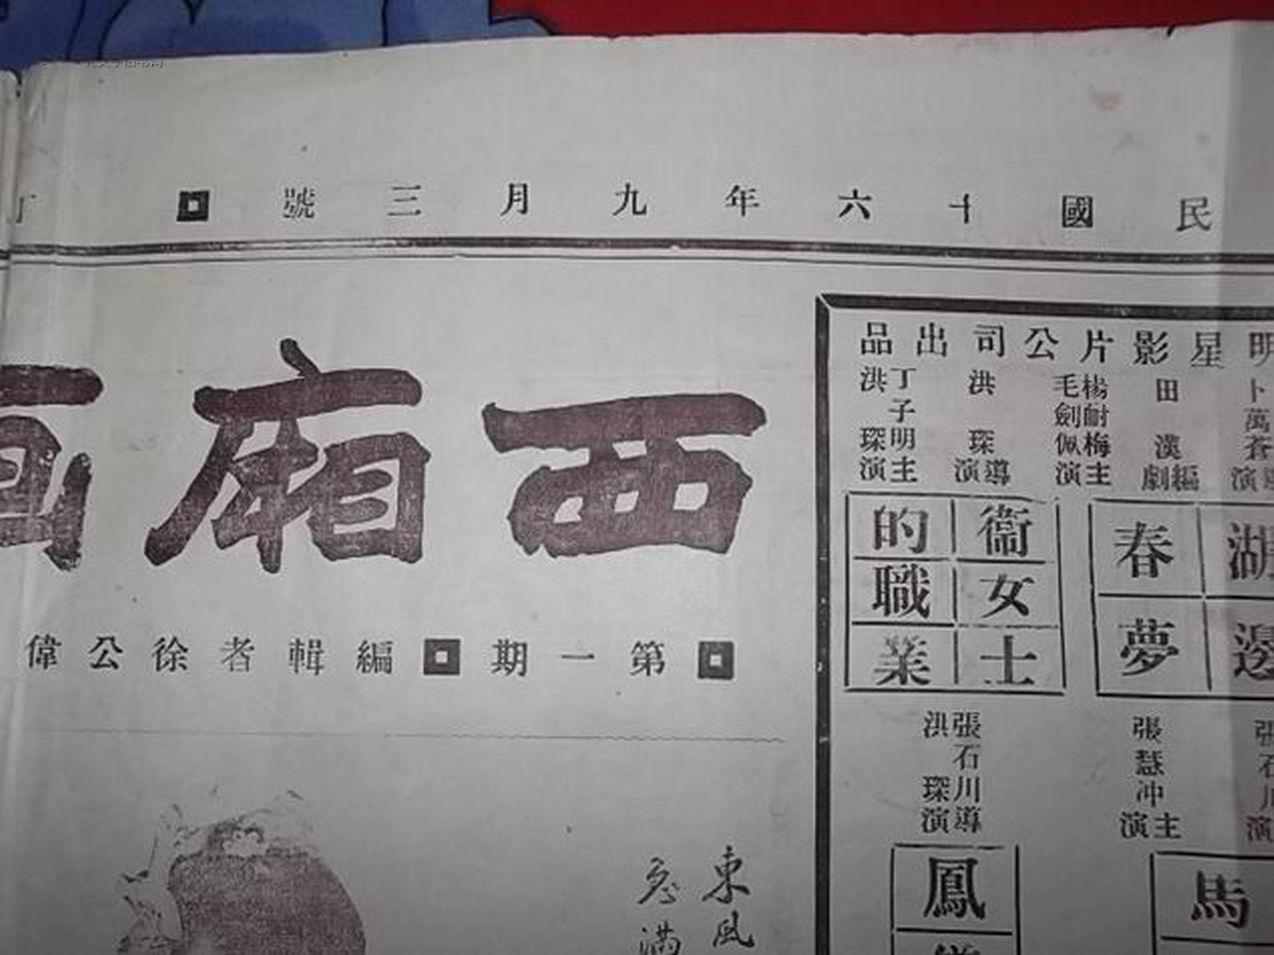 民國十六年九月三號
西廂
第一期
編輯者徐公偉
明星影片公司出品
卜萬蒼導演
田漢編劇
楊耐梅
毛劍佩
主演
洪琛導演
丁子明
洪琛
主演
湖邊春夢
衞女士的職業
張慧冲主演
張石川
洪琛
導演
馬
鳳
東風